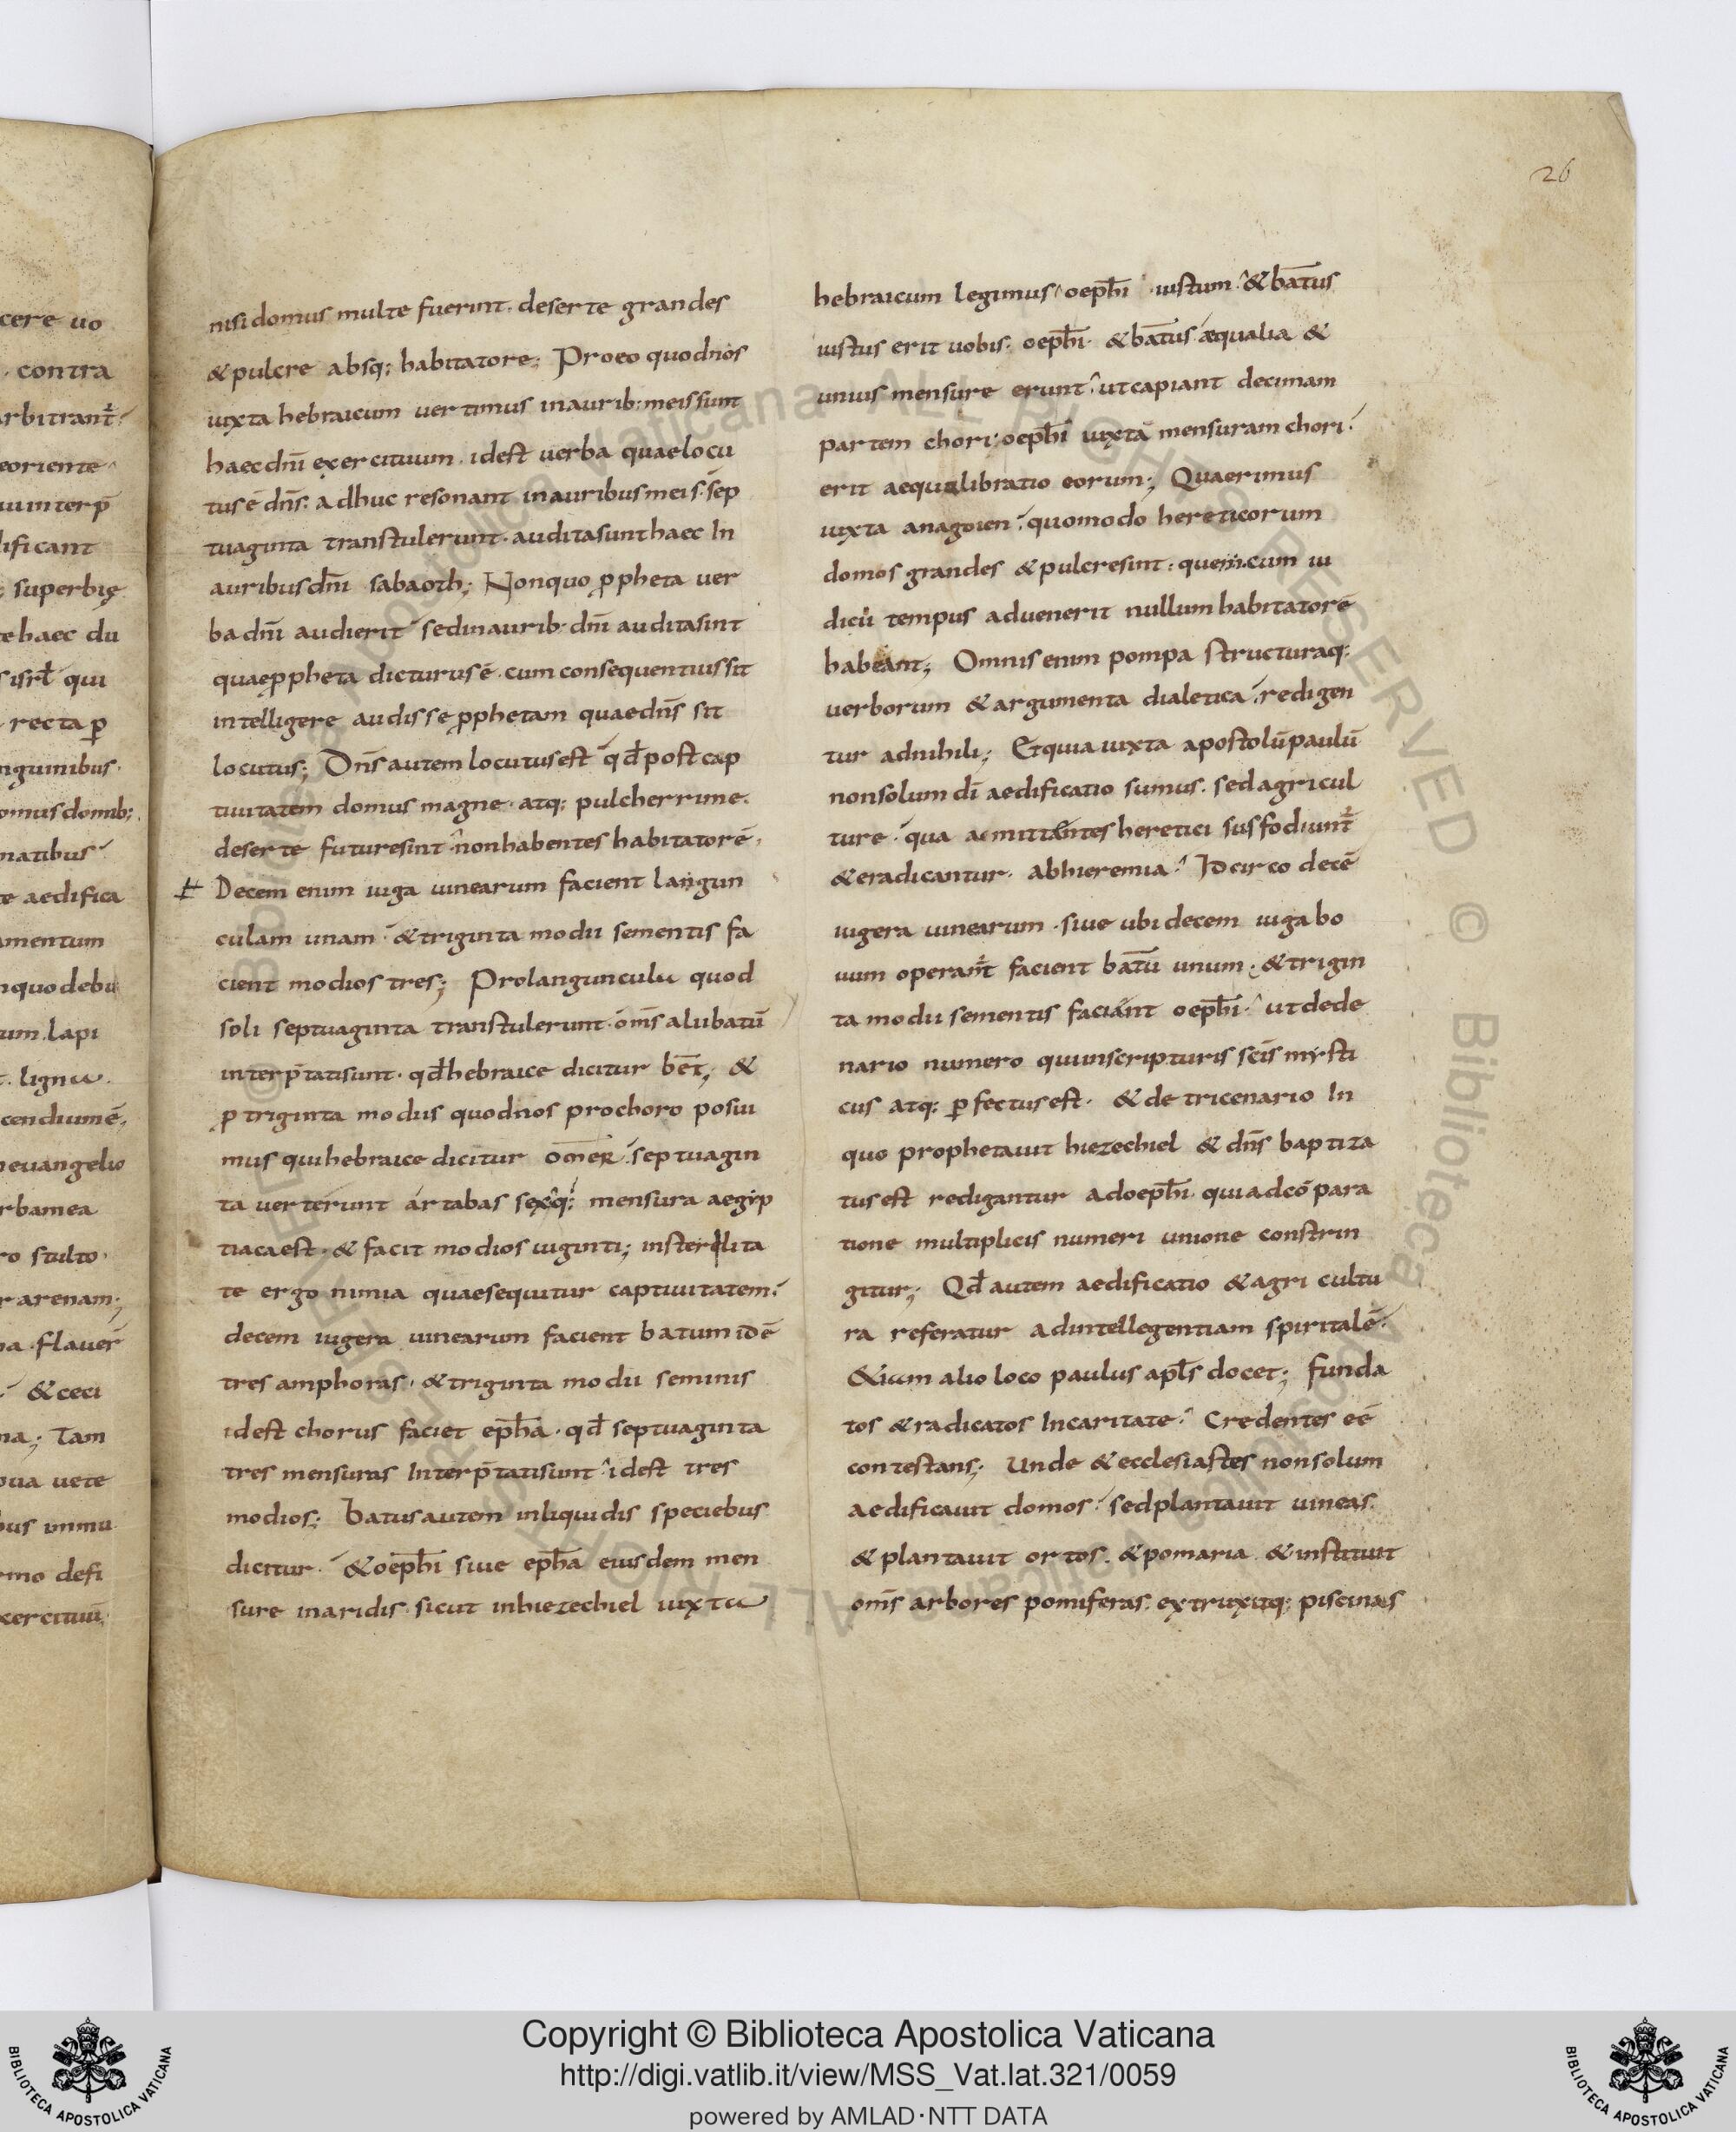 26
cere uo
contra
arbitrant̄
eoriente
uinterp̄
ificant
superbię
te haec du
s isrł qui
recta ꝑ
nguinibus
omus domib;
natibus
te aedifica
amentum
nquodebu
um. lapi
lignu
cendiumē
euangelio
rbamea
ro stulto
r arenam;
a flauer̄
& ceci
na; Tam
oua uete
bus inmu
mo defi
xercituū
nisi domus multe fuerint. deserte grandes
& pulcre absq; habitatore; Pro eo quod nos
iuxta hebraicum uertimus inaurib: meis sunt
haec dnī exercituum. id est uerba quae locu
tus ē dns̄. adhuc resonant inauribus meis. sep
tuaginta transtulerunt. audita sunt haec In
auribus dnī sabaoth; Non quo ꝓpheta uer
ba dnī audierit sed inaurib. dnī audita sint
quae ꝓpheta dicturus ē. cum consequentius sit
intelligere audisse ꝓphetam quae dns̄ sit
locutus; Dns̄ autem locutus est qđ post cap
tiuitatem domus magne. atq; pulcherrime.
deserte future sint non habentes habitatorē.
Decem enim iuga uinearum facient langun
culam unam. & triginta modii sementis fa
cient modios tres; Pro langunculu quod
soli septuaginta transtulerunt. oms̄ alii batū
interp̄tati sunt. qđ hebraice dicitur bet̄; &
ꝓ triginta modiis quod nos pro choro posui
mus qui hebraice dicitur om̄er. septuagin
ta uerterunt artabas sex q; mensura aegip
tiaca est. & facit modios uiginti; in sterelita
te ergo nimia quae sequitur captiuitatem.
decem iugera uinearum facient batum id ē
tres amphoras. & triginta modii seminis
id est chorus faciet eph̄a. qđ septuaginta
tres mensuras Interp̄tati sunt id est tres
modios; Batus autem inliquidis speciebus
dicitur. & oeph̄i siue eph̄a eiusdem men
sure inaridis. sicut inhiezechiel iuxtu
hebraicum legimus oeph̄i iustum & bat̄us
iustus erit uobis. oeph̄i. & bat̄us aequalia &
unius mensure erunt. ut capiant decimam
partem chori; oeph̄i iuxta mensuram chori.
erit aequalibratio eorum; Quaerimus
iuxta anagoien. quomodo hereticorum
domos grandes & pulcre sint. quem cum iu
dicii tempus aduenerit nullum habitatorē
habeant; Omnis enim pompa structuraq;
uerborum & argumenta dialetica. redigen
tur adnihili; Et quia iuxta apostolū paulū
non solum dī aedificatio sumus. sed agricul
ture. qua amittantes heretici susfodiunt̄
& eradicantur. abhieremia. Idcirco decē
iugera uinearum. siue ubi decem iuga bo
uum operant̄ facient bat̄u unum. & trigin
ta modii sementis faciant oeph̄i. ut de de
nario numero qui inscripturis scīs mysti
cus atq; ꝑfectus est. & de tricenario In
quo prophetauit hiezechiel & dns̄ baptiza
tus est redigantur adoeph̄i. qui ad cō para
tione multiplicis numeri unione constrin
gitur; Qđ autem aedificatio & agri cultu
ra referatur adintellegentiam spiritalē.
& ium alio loco paulus apłs docet; funda
tos & radicatos Incaritate. Credentes eē
contestans; Unde & ecclesiastes non solum
aedificauit domos. sed plantauit uineas.
& plantauit ortos. & pomaria & instituit
oms̄ arbores pomiferas. extruxitq; piscinas
Copyright © Biblioteca Apostolica Vaticana
http://digi.vatlib.it/view/MSS_Vat.lat.321/0059
powered by AMLAD·NTT DATA
BIBLIOTECA APOSTOLICA VATICANA
BIBLIOTECA APOSTOLICA VATICANA